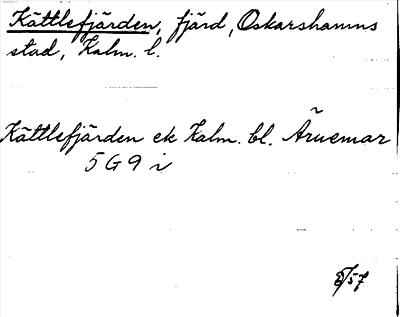 Kättlefjärden, fjärd, Oskarshamns
stad, Kalm. l.
Kättlefjärden ek Kalm. bl. Äruemar
5 G 9 i
/57